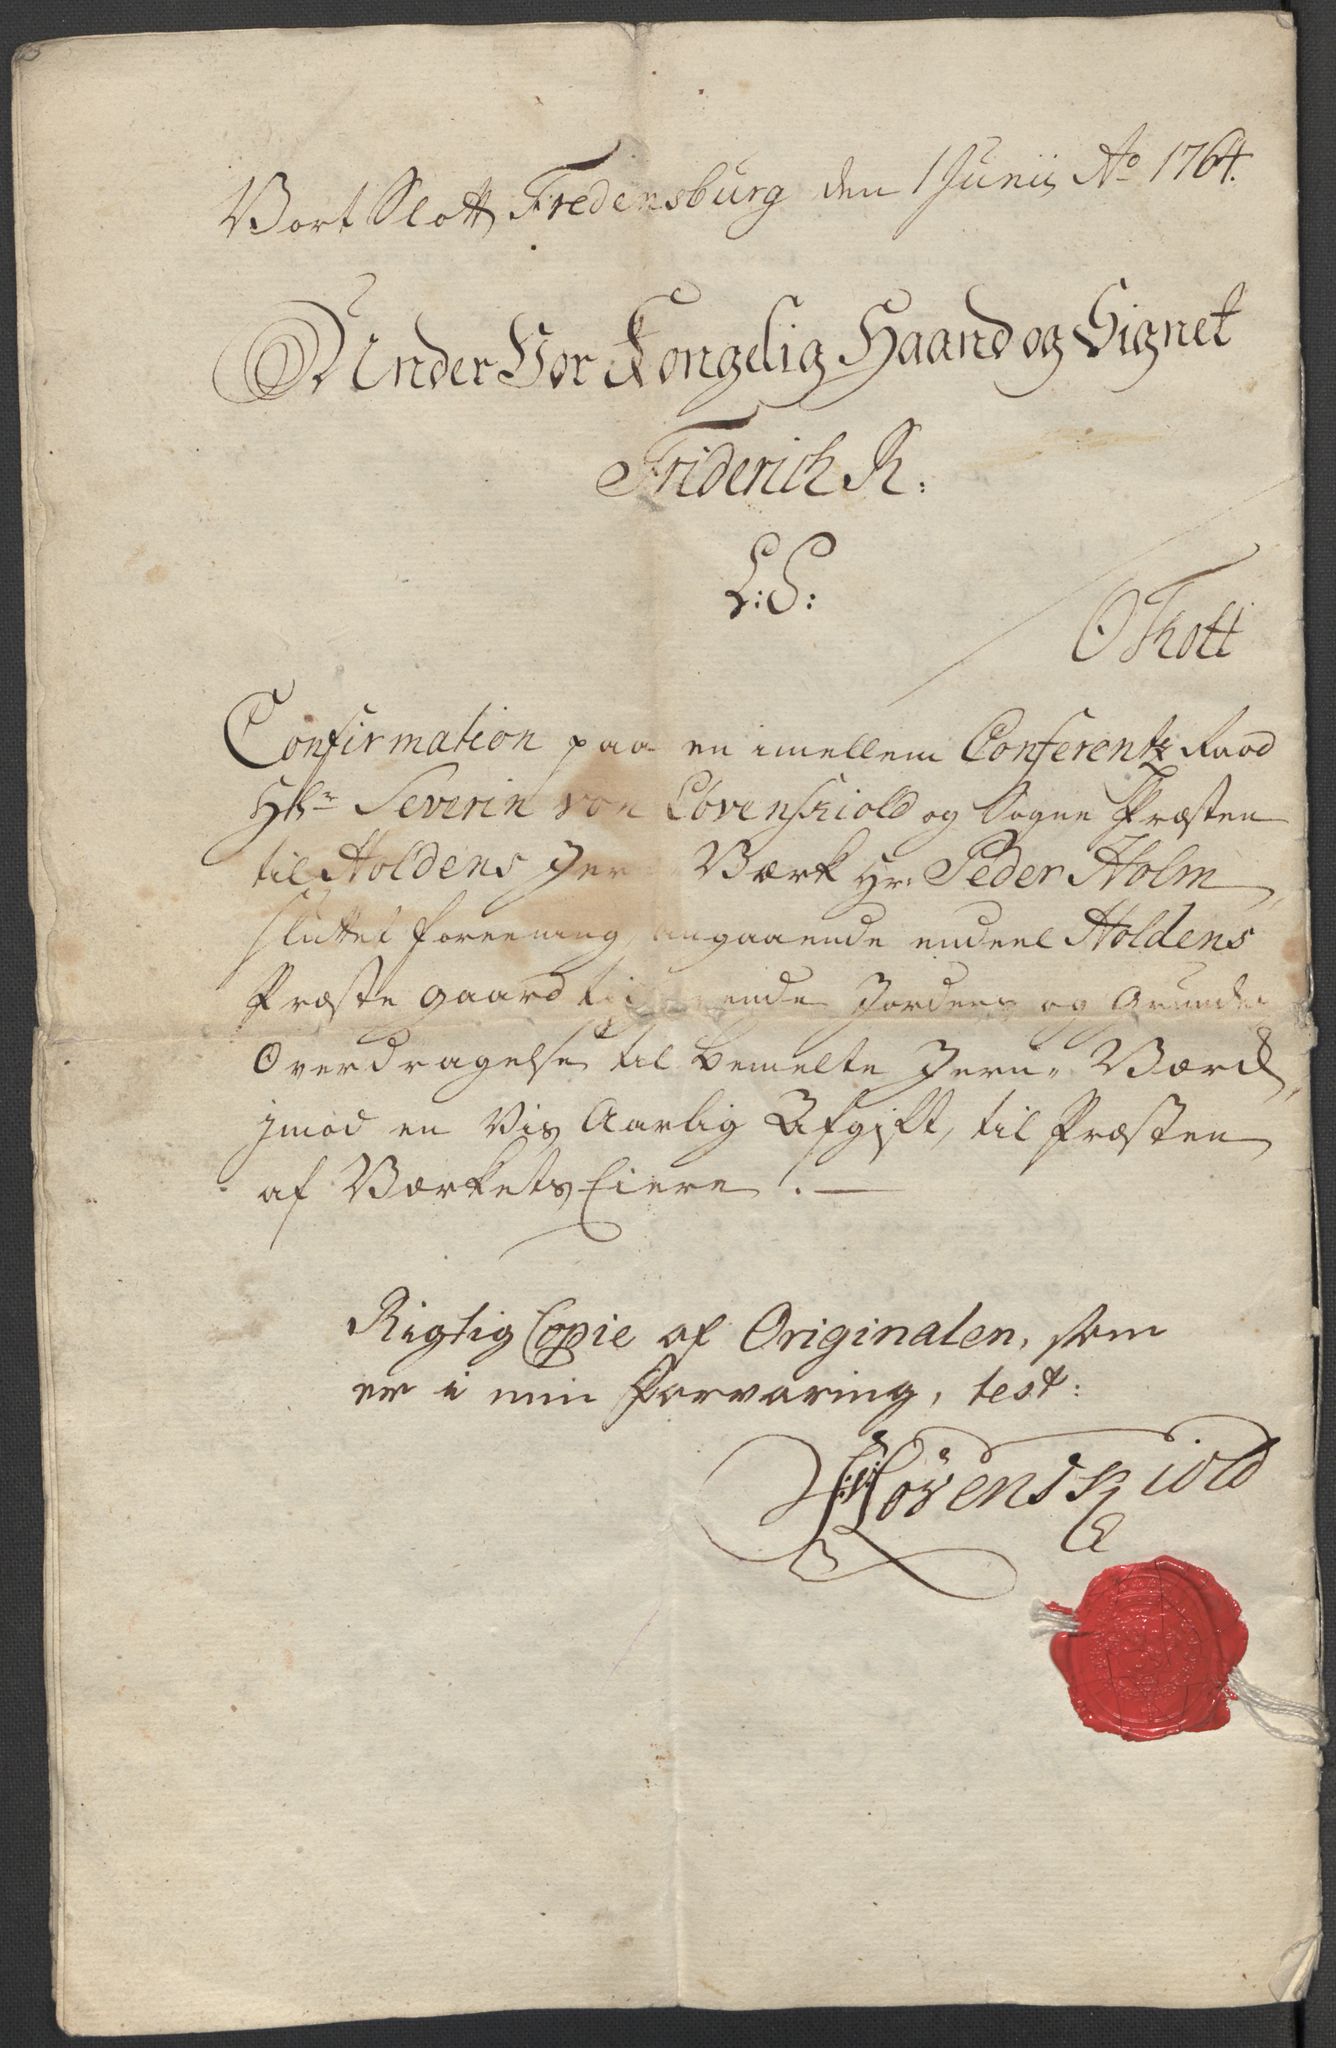 Vort Slott Fredensburg den 1 Junii Ao 1764.
Under Vor Kongelig Haand og Signet
Friderich R:
L:S:
O Thott
Confirmation paa en imellem Conferentz Raad
Hr Severin von Løvenskiold og Sogne Præsten
til Holdens Jern Værk Hr: Peder Holm
sluttet foreening, angaaende endeel Holdens
Præste gaard ende Jorders og Grundes
Overdragelse til bemelte Jern-Værck,
jmod en Vis Aarlig Afgift, til Præsten
af Værkets Eiere .—
Rigtig Copie af Originalen, som
er i min forvaring, test:
Løvenskiold